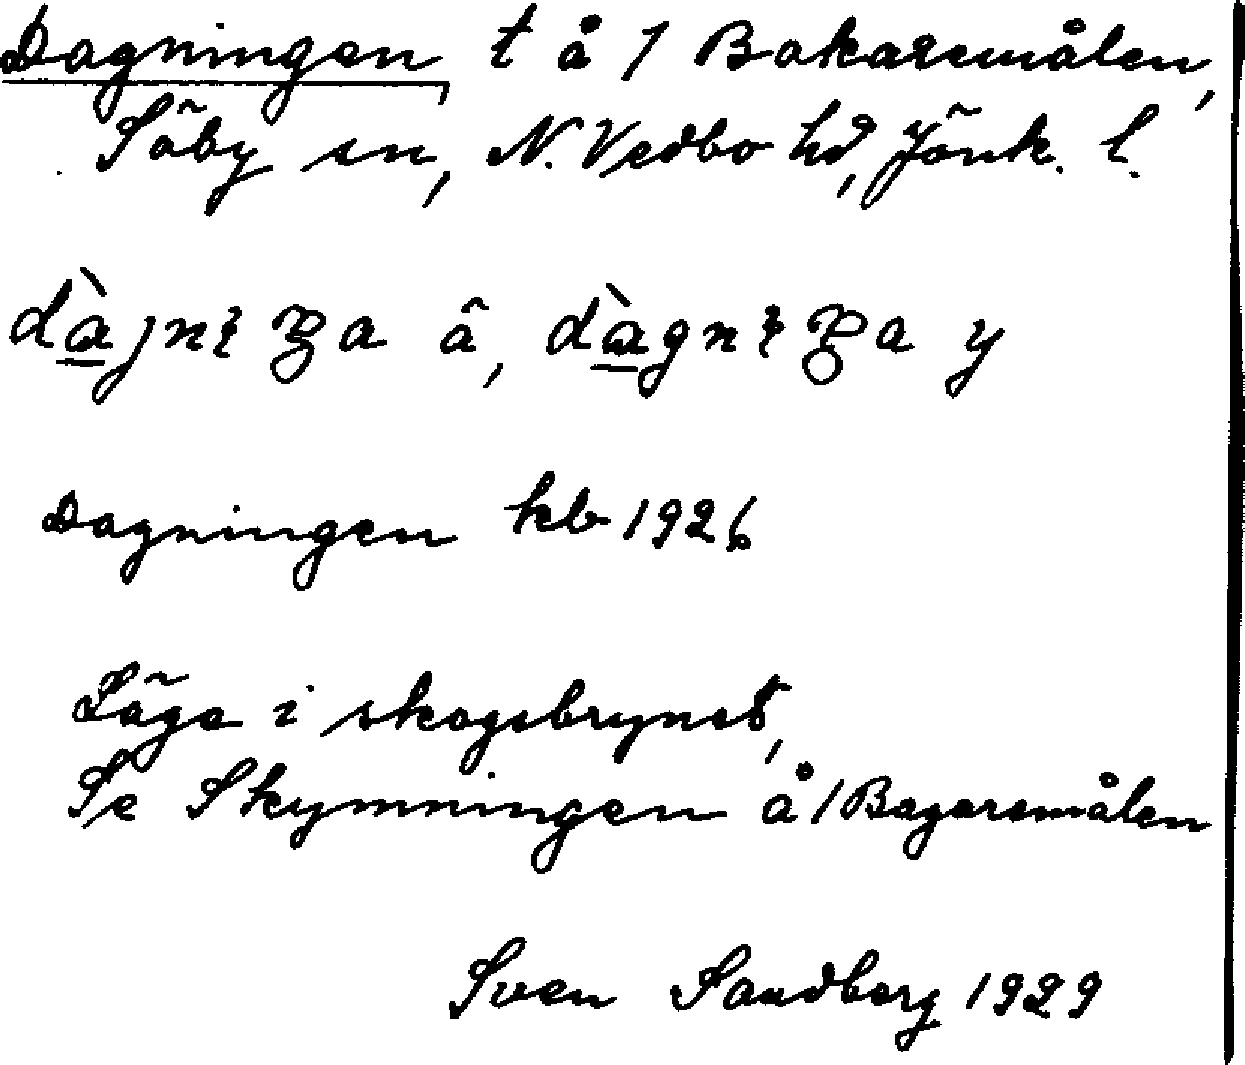 Dagningen, t å 1 Bakaremålen,
Säby sn, N. Vedbo hd, Jönk. l.
Dagningen kb 1926
Läge i skogsbrynet,
Se Skymningen å 1 Bagaremålen
Sven Sandberg 1929